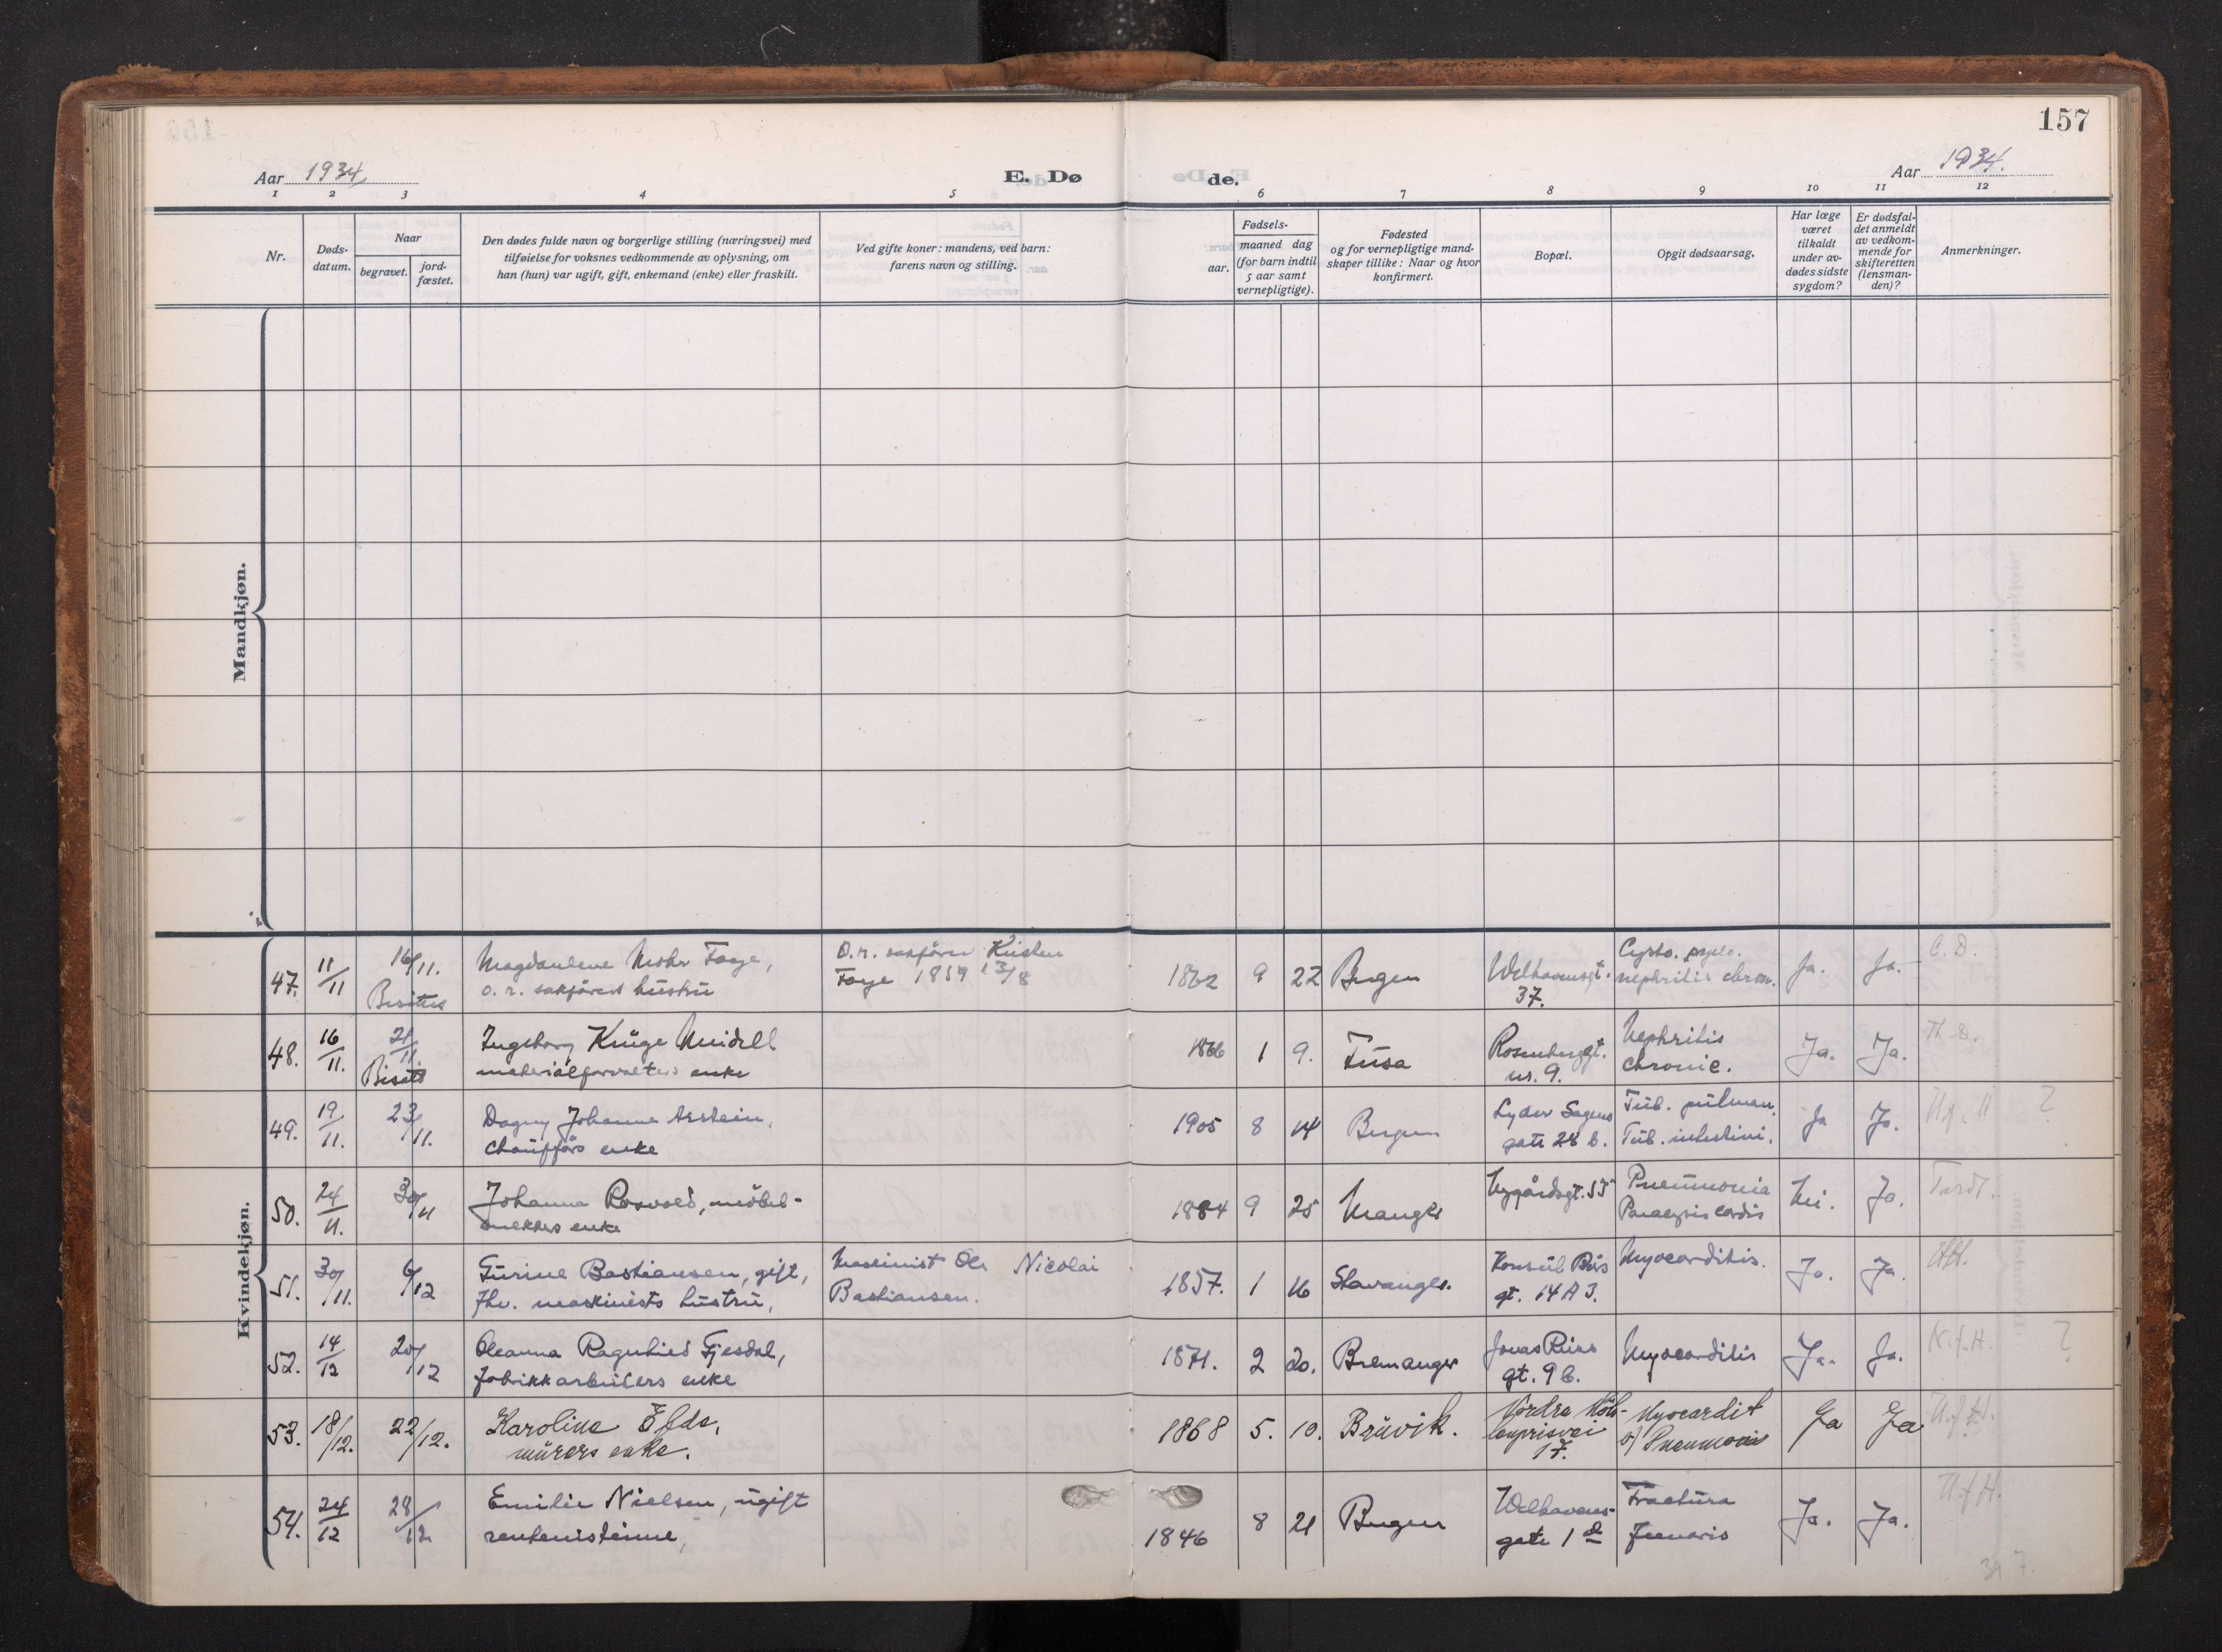 157
Aar 1934
E. Dø
de.
Aar 1934.
1 2 3 4 5 6 7 8 9 10 11 12
Nr.
Døds-
datum.
Naar
begravet.
jord-
fæstet.
Den dødes fulde navn og borgerlige stilling (næringsvei) med
tilføielse for voksnes vedkommende av oplysning, om
han (hun) var ugift, gift, enkemand (enke) eller fraskilt.
Ved gifte koner: mandens, ved barn:
farens navn og stilling.
Fødsels-
aar.
maaned dag
(for barn indtil
5 aar samt
vernepligtige).
Fødested
og for vernepligtige mand-
skaper tillike: Naar og hvor
konfirmert.
Bopæl.
Opgit dødsaarsag.
Har læge
været
tilkaldt
under av-
dødes sidste
sygdom?
Er dødsfal-
det anmeldt
av vedkom-
mende for
skifteretten
(lensman-
den)?
Anmerkninger.
Mandkjøn.
Kvindekjøn.
47. 11/11 16/11. Magdalene Mohr Faye, O.r. sakfører Kristen 1862 9 22 Bergen Welhavensgt. Cysto. pyelo. Ja. Ja. C. D.
Bisettes o. r. sakførers hustru Faye 1859 13/8 37. nephritis chron.
48. 16/11. 21/11. Ingeborg Krüge Meidell 1866 1 9. Fusa Rosenberggt. Nephritis Ja. Ja. Th. D.
Bisatt materialforvalters enke nr. 9. chronic.
49. 19/11. 23/11. Dagny Johanne Arstein, 1905 8 14 Bergen Lyder Sagens Tub. pulmon. Ja Ja. ?
chaufførs enke gate 28 b. Tub. intestini.
50. 24/11. 30/11 Johanna Rosvold, møbel- 1884 9 25 Manger Nygårdsgt. Pneumonia Nei. Ja.
snekkers enke Paralysis cordis
51. 30/11. 6/12 Turine Bastiansen, gift, Maskinist Ole Nicolai 1857. 1 16 Stavanger. Konsul Børs Myocarditis. Ja. Ja.
fhv. maskinists hustru, Bastiansen. gt. 14 A 3.
52. 14/12 20/12 Oleanna Ragnhild Gjesdal, 1871. 2 20. Bremanger Jonas Reins Myocarditis Ja. Ja. K.f.H. ?
fabrikkarbeiders enke gt. 9 b.
53. 18/12. 22/12. Karoline 1868 5. 10. Bruvik. Nordre Møh- Myocardit Ja Ja U.f.H.
murers enke. lenprisvei o/ Pneumoni
17.
54. 24/12 28/12 Emilie Nielsen, ugift 1846 8 21 Bergen Welhavens- Fractura Ja. Ja. U.f.H.
rentenistinne, gate 1 d femoris